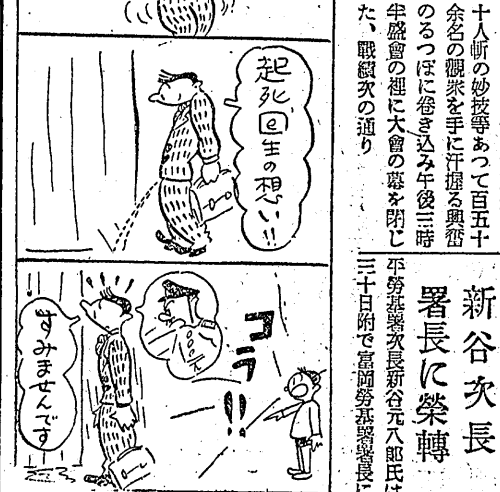 十人斬の妙技等あつて百五十
余名の觀衆を手に汗握る興奮
のるつぼに卷き込み午後三時
半盛會の裡に大會の幕を閉じ
た、戰績次の通り
新谷次長
署長に榮轉
平勞基署次長新谷元八郞氏は
三十日附で富岡勞基署署長に
起死
回生の
想い!!
コラ!!
すみませんです